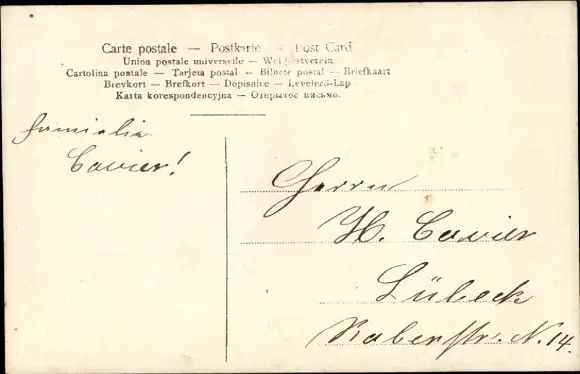 Carte postale — Postkarte — Post Card
Union postale universelle — Weltpostverein
Cartolina postale — Tarjeta postal — Bilhete postal — Briefkaart
Brevkort — Brefkort — Dopisnice — Levelező-Lap
Karta korespondencyjna — Открытое письмо.
Familie
Cavier!
Herrn
H. Cavier
Lübeck
Raberstr. N. 14.